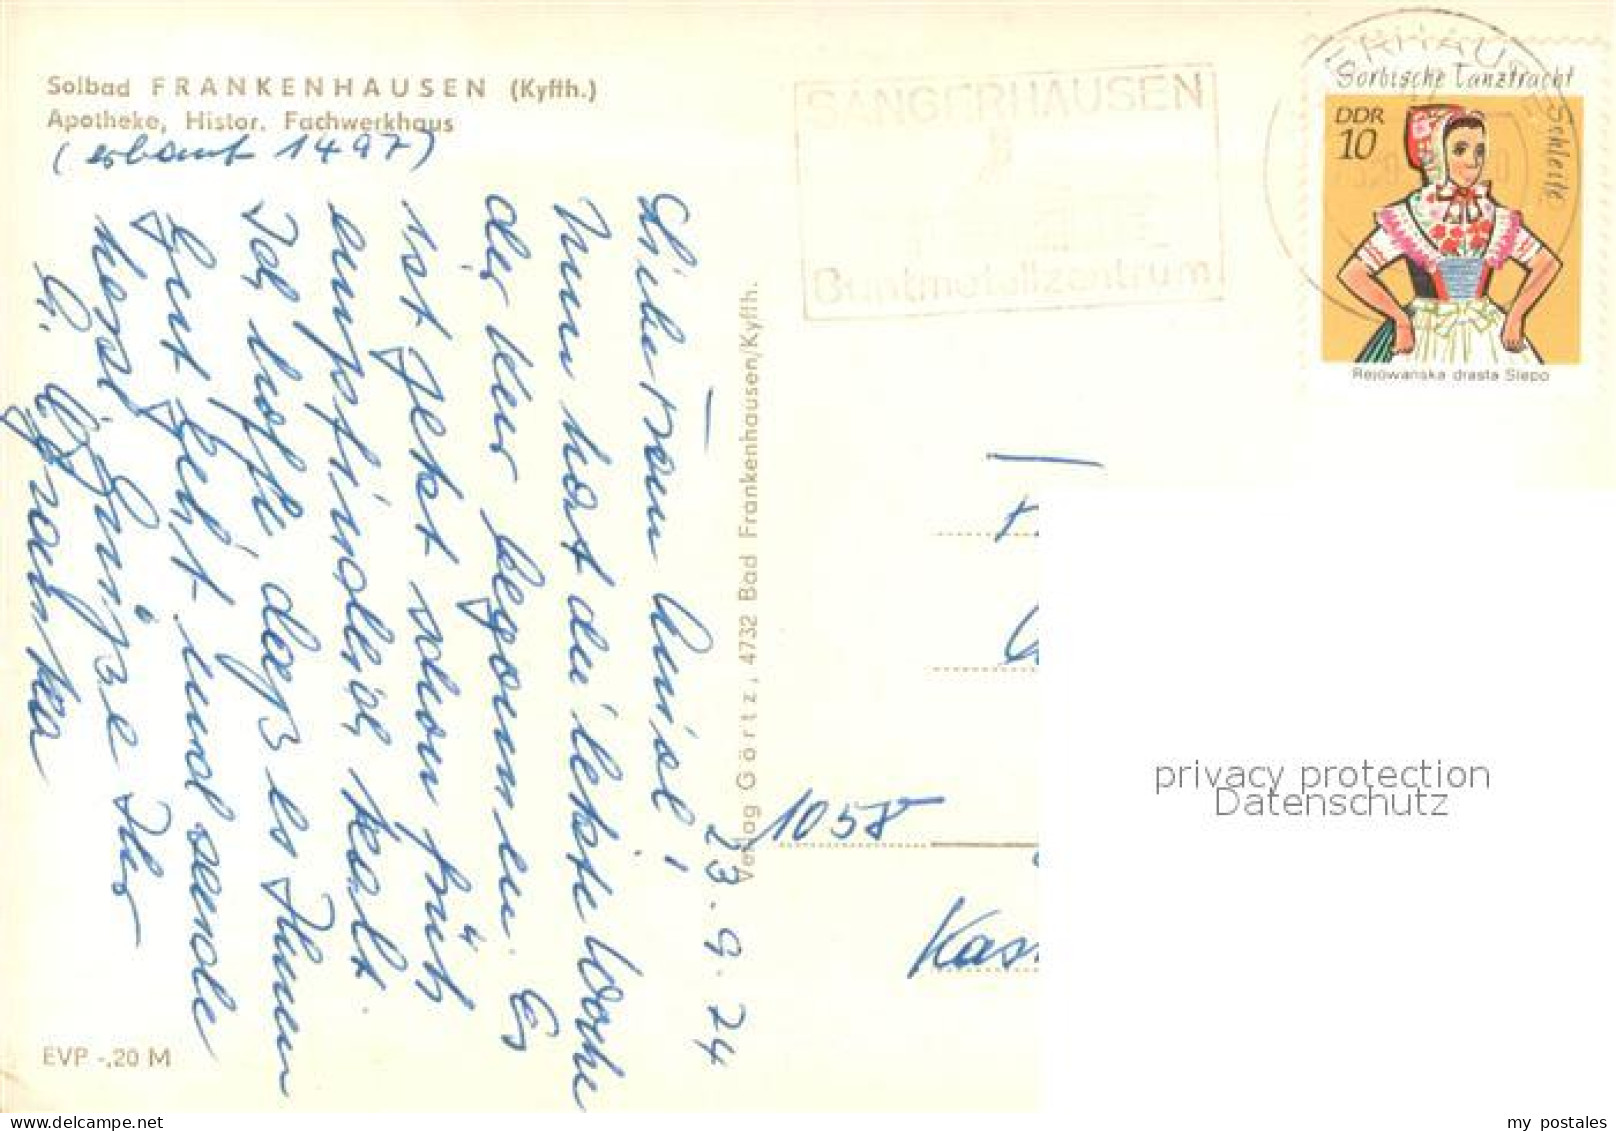 Solbad FRANKENHAUSEN (Kyffh.)
Apotheke, Histor. Fachwerkhaus
(erbaut 1497)
23.9.74
Liebe Frau
Nun hat die letzte Woche
der Kur begonnen. Es
ist jetzt schon früh
empfindlich kalt.
Ich hoffe, daß es Ihnen
gut geht und sende
herzl. Grüße Ihr
G.
EVP -,20 M
Verlag Görtz, 4732 Bad Frankenhausen/Kyffh.
SANGERHAUSEN
Buntmetallzentrum
ERHAUSE
Sorbische Tanztracht
Schleife
DDR
10
Rejowanska drasta Slepo
1058
Kas
privacy protection
Datenschutz
my postales